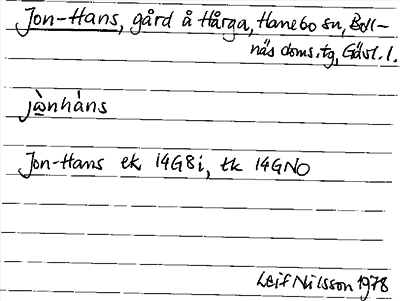 Jon-Hans, gård å Hårga, Hanebo sn, Boll-
näs doms.tg, Gävl. l.
jànhàns
Jon-Hans ek 14G8i, tk 14GNO
Leif Nilsson 1978